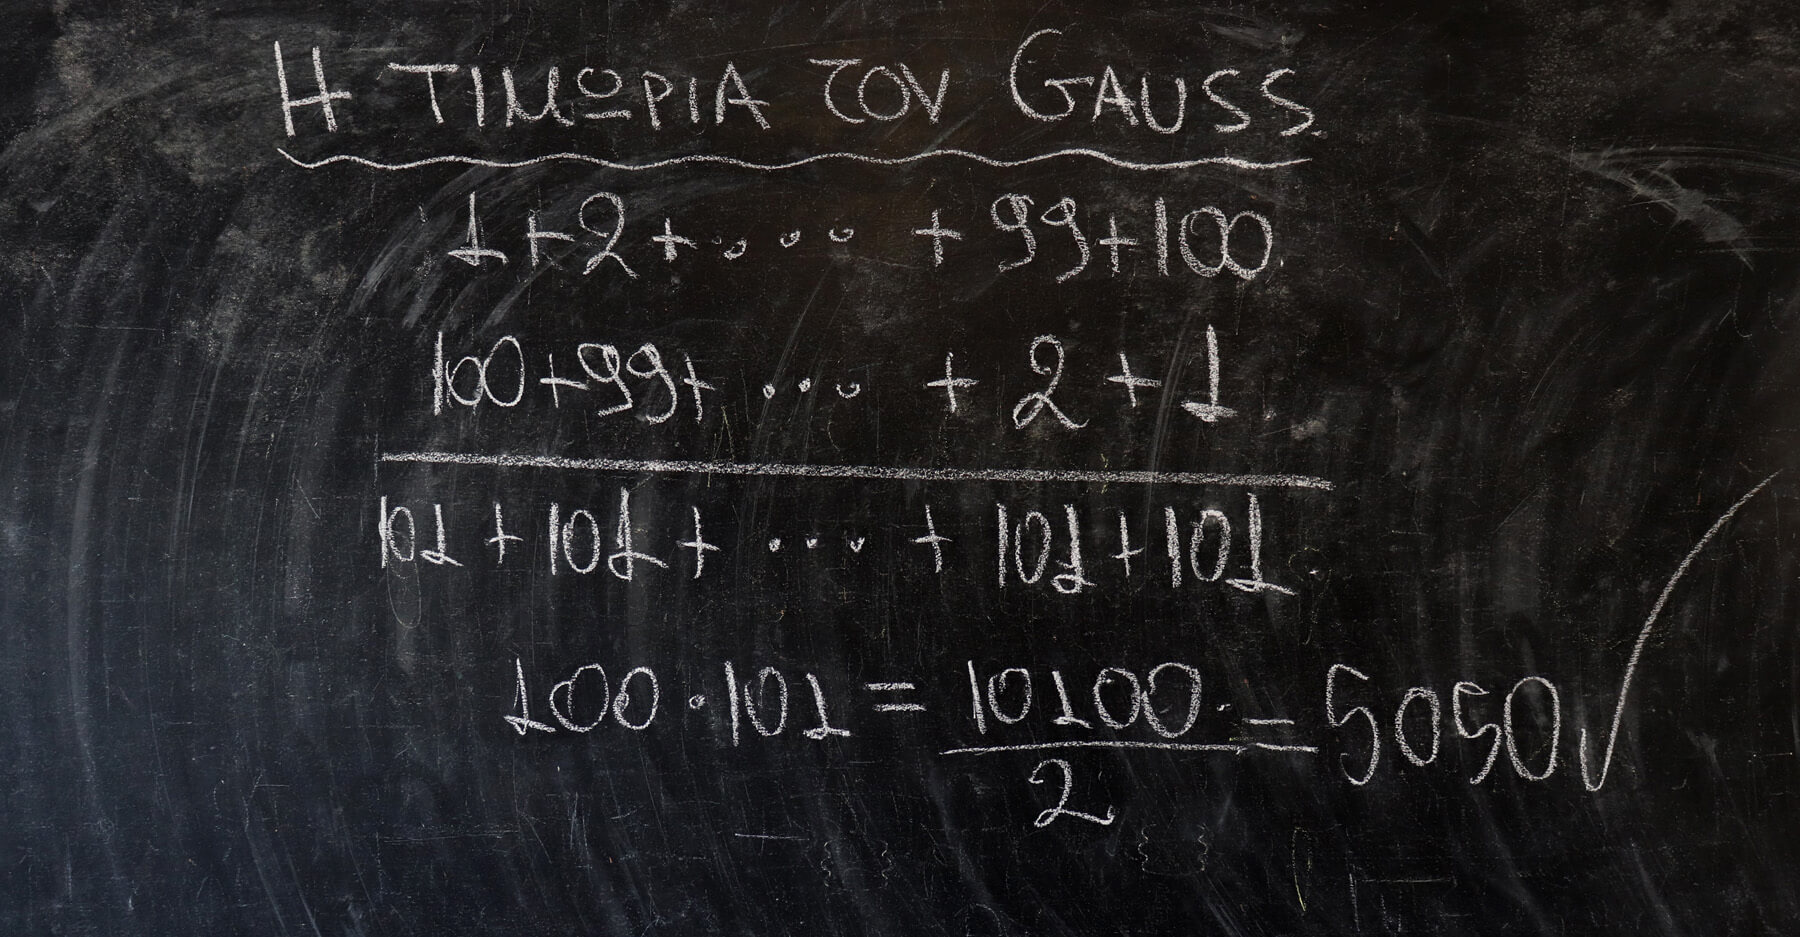 Η ΤΙΜΩΡΙΑ ΤΟΥ GAUSS
1+2+... +99+100
100+99+ ... + 2 + 1
101 + 101 + ... + 101 + 101
100 · 101 = 10100/2 = 5050 ✓